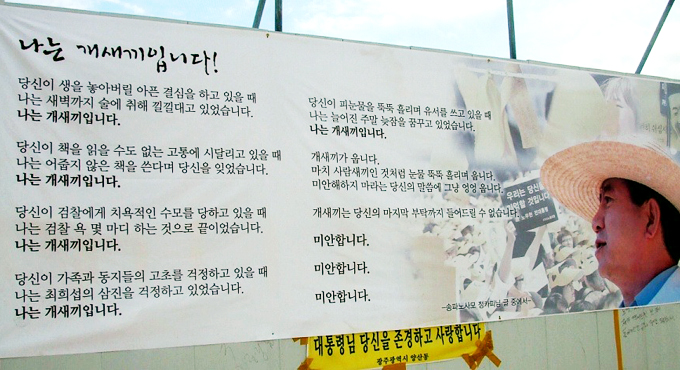 나는 개새끼입니다!
당신이 생을 놓아버릴 아픈 결심을 하고 있을 때
나는 새벽까지 술에 취해 낄낄대고 있었습니다.
나는 개새끼입니다.
당신이 책을 읽을 수도 없는 고통에 시달리고 있을 때
나는 어줍지 않은 책을 쓴다며 당신을 잊었습니다.
나는 개새끼입니다.
당신이 검찰에게 치욕적인 수모를 당하고 있을 때
나는 검찰 욕 몇 마디 하는 것으로 끝이었습니다.
나는 개새끼입니다.
당신이 가족과 동지들의 고초를 걱정하고 있을 때
나는 최희섭의 삼진을 걱정하고 있었습니다.
나는 개새끼입니다.
당신이 피눈물을 뚝뚝 흘리며 유서를 쓰고 있을 때
나는 늘어진 주말 늦잠을 꿈꾸고 있었습니다.
나는 개새끼입니다.
개새끼가 웁니다.
마치 사람새끼인 것처럼 눈물 뚝뚝 흘리며 웁니다.
미안해하지 마라는 당신의 말씀에 그냥 엉엉 웁니다.
개새끼는 당신의 마지막 부탁까지 들어드릴 수 없습니다.
미안합니다.
미안합니다.
미안합니다.
우리는 당신을
기억할 것입니다
-송파노사모 정카피님 글 중에서-
대통령님 당신을 존경하고 사랑합니다
광주광역시 양산동